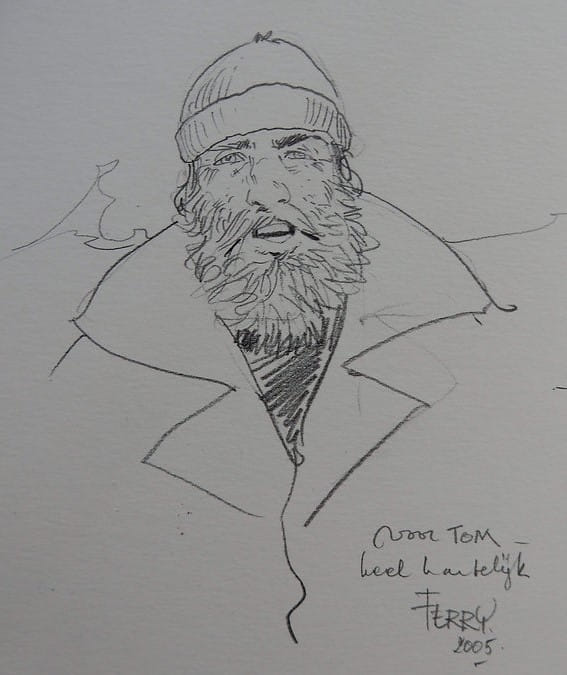 voor TOM –
heel hartelijk
FERRY.
2005.